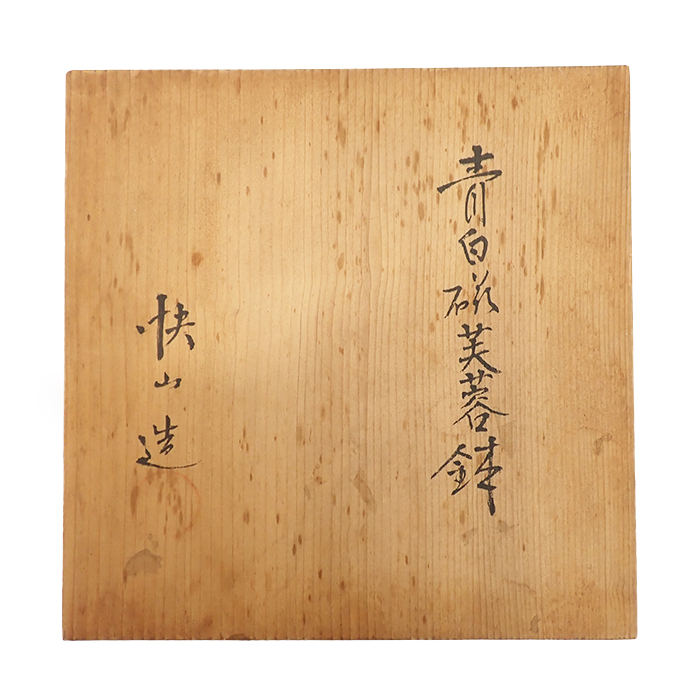 青白磁芙蓉鉢
快山造